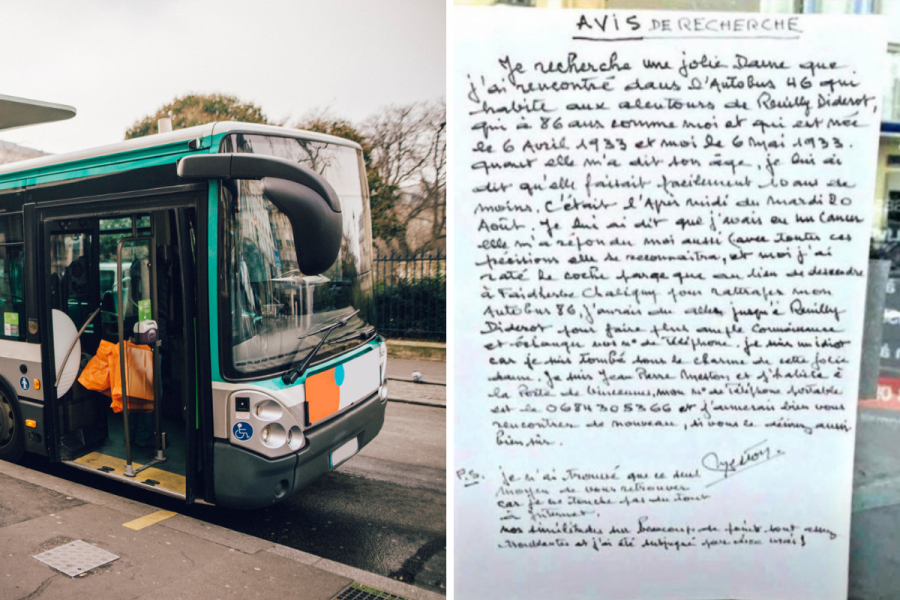 AVIS DE RECHERCHE
Je recherche une jolie Dame que
j'ai rencontré dans l'Autobus 46 qui
habite aux alentours de Reuilly Diderot,
qui à 86 ans comme moi et qui est née
le 6 Avril 1933 et moi le 6 mai 1933.
quant elle m'a dit son âge, je lui ai
dit qu'elle faisait facilement 10 ans de
moins. c'était l'Après midi du mardi 20
Août. Je lui ai dit que j'avais eu un Cancer
elle m'a répondu moi aussi (avec toutes ces
précisions elle se reconnaitra, et moi j'ai
raté le coche parge que au lieu de descendre
à Faidherbe Chaligny pour rattraper mon
Autobus 86, j'aurais du aller jusqu'à Reuilly
Diderot pour faire plus ample Connaissance
et échanger nos n° de Téléphone. je suis un idiot
car je suis tombé sous le charme de cette jolie
dame. Je suis Jean Pierre et j'habite à
la Porte de Vincennes, mon n° de Téléphone portable
est le 0684305366 et j'aimerais bien vous
rencontrer de nouveau, si vous le désirez aussi
bien sûr.
P.S. je n'ai trouvé que ce seul
moyen de vous retrouver
car je ne touche pas du tout
à internet.
nos similitudes sur Beaucoup de point sont assez
troublantes et j'ai été subjugué par